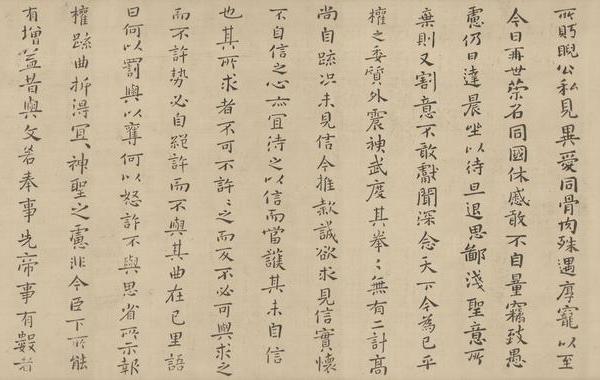 所盱睨公私見異愛同骨肉殊遇厚寵以至
今日再世榮名同國休慼敢不自量竊致愚
慮仍日達晨坐以待旦退思鄙淺聖意所
棄則又割意不敢獻聞深念天下今為已平
權之委質外震神武度其拳〻無有二計高
尚自疏況未見信今推款誠欲求見信實懷
不自信之心亦宜待之以信而當護其未自信
也其所求者不可不許〻之而反不必可與求之
而不許勢必自絕許而不與其曲在己里語
曰何以罰與以奪何以怒許不與思省所示報
權疏曲折得宜〻神聖之慮非今臣下所能
有增益昔與文若奉事先帝事有數者